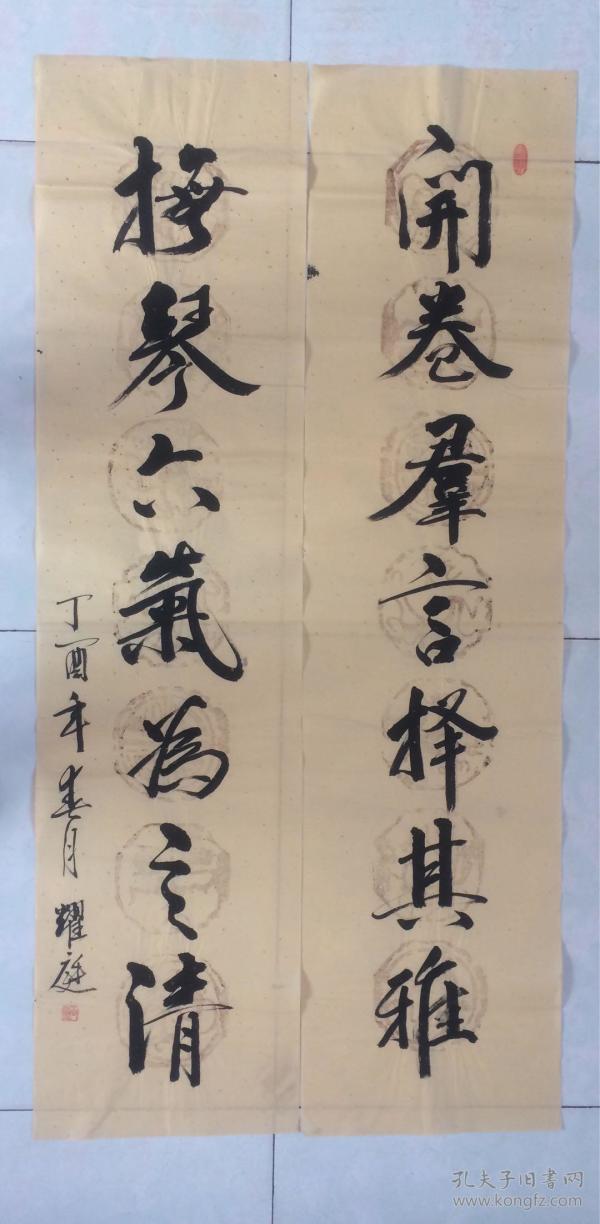 開卷羣言择其雅
撫琴六氣為之清
丁酉年春月 耀庭
孔夫子旧書网
www.kongfz.com